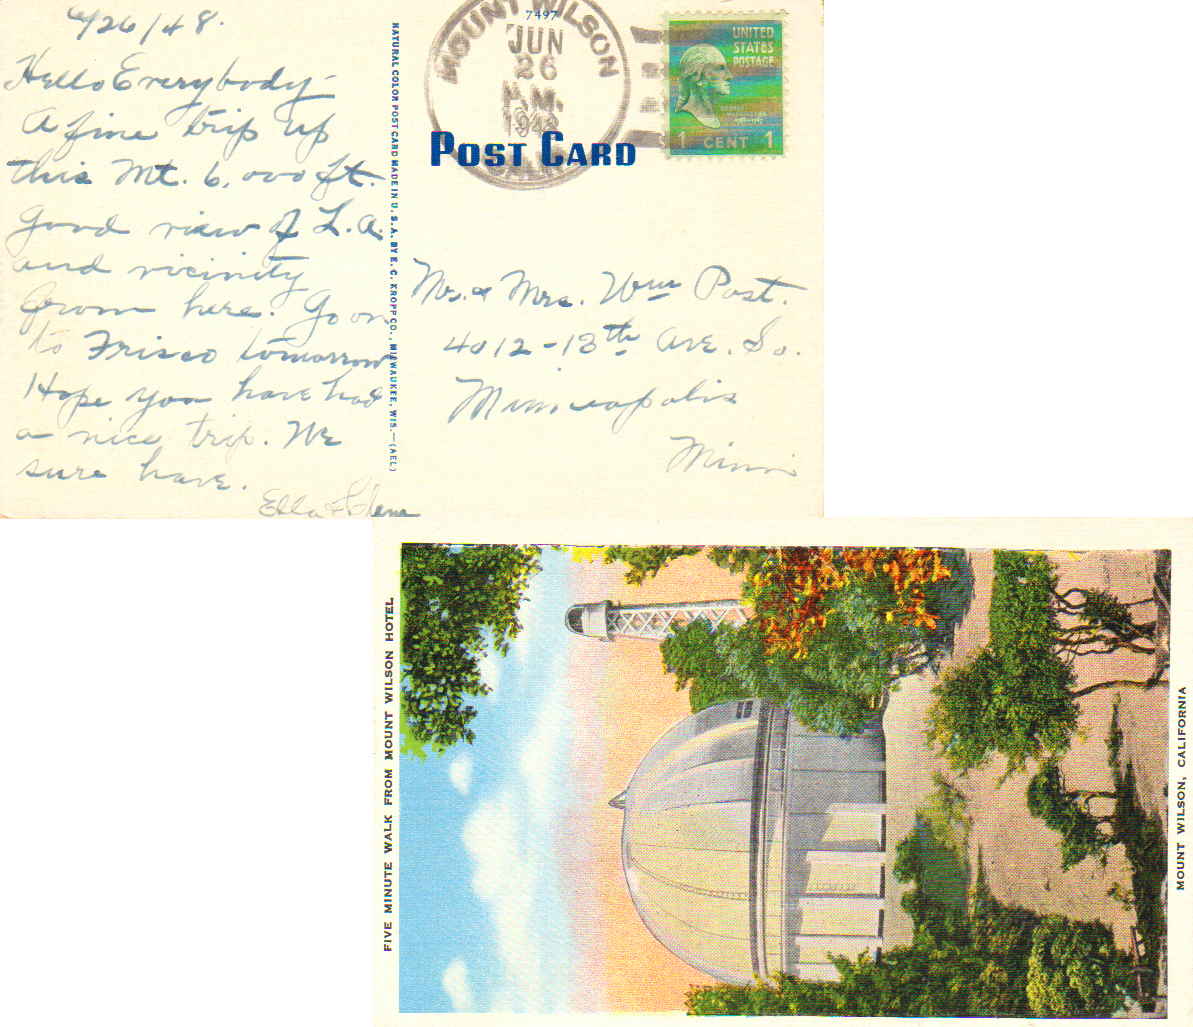 6/26/48.
Hello Everybody-
A fine trip up
this Mt. 6,000 ft.
Good view of L.A.
and vicinity
from here. Go on
to Frisco tomorrow
Hope you have had
a nice trip. We
sure have.
Ella + Clem
NATURAL COLOR POST CARD MADE IN U.S.A. BY E. C. KROPP CO., MILWAUKEE, WIS.—(AEL)
7497
MOUNT WILSON
JUN
26
P.M.
1948
CALIF.
POST CARD
UNITED
STATES
POSTAGE
1 CENT 1
Mr. & Mrs. Wm Post.
4012-13th Ave. So.
Minneapolis
Minn
FIVE MINUTE WALK FROM MOUNT WILSON HOTEL
MOUNT WILSON, CALIFORNIA